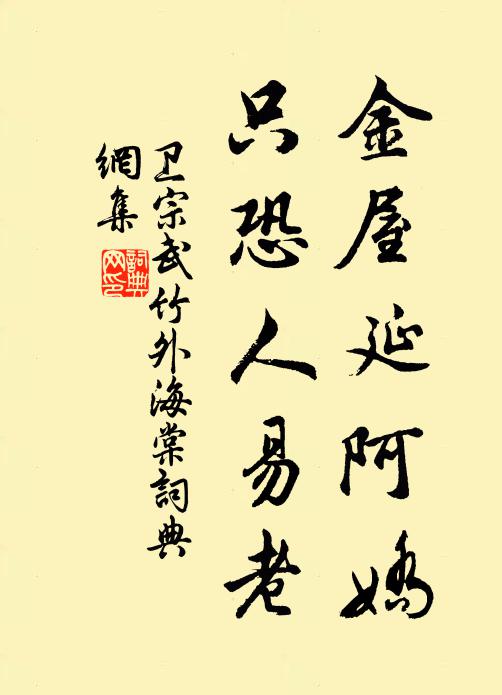 金屋延阿嬌
只恐人易老
卫宗武竹外海棠詞典
網集
詞典
网印